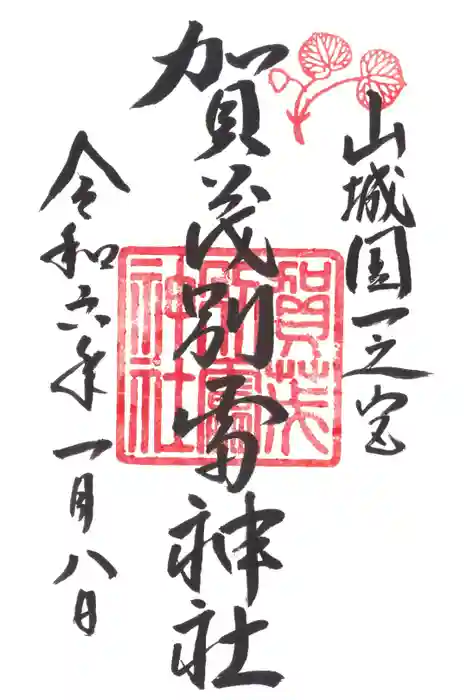 山城國一之宮
賀茂別雷神社
賀茂
別雷
神社
令和六年一月八日